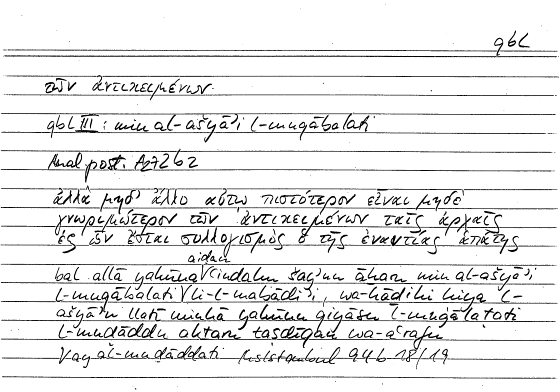 qbl
τῶν ἀντικειμένων.
qbl III : min al-ašyāʾi l-muqābalati
Anal post. A2 72b2
ἀλλὰ μηδ᾽ ἄλλο αὐτῷ πιστότερον εἶναι μηδὲ
γνωριμώτερον τῶν ἀντικειμένων ταῖς ἀρχαῖς
ἐξ ὧν ἔσται συλλογισμὸς ὁ τῆς ἐναντίας ἀπάτης
aidan
bal allā yakūna ʿindahu šaiʾun āḫaru min al-ašyāʾi
l-muqābalati li-l-mabādiʾi, wa-hādihi hiya l-
ašyāʾu llatī minhā yakūnu qiyāsu l-muġālaṭati
l-muḍāddu aktara taṣdīqan wa-aʿrafu
l-muḍāddati 946 18/19